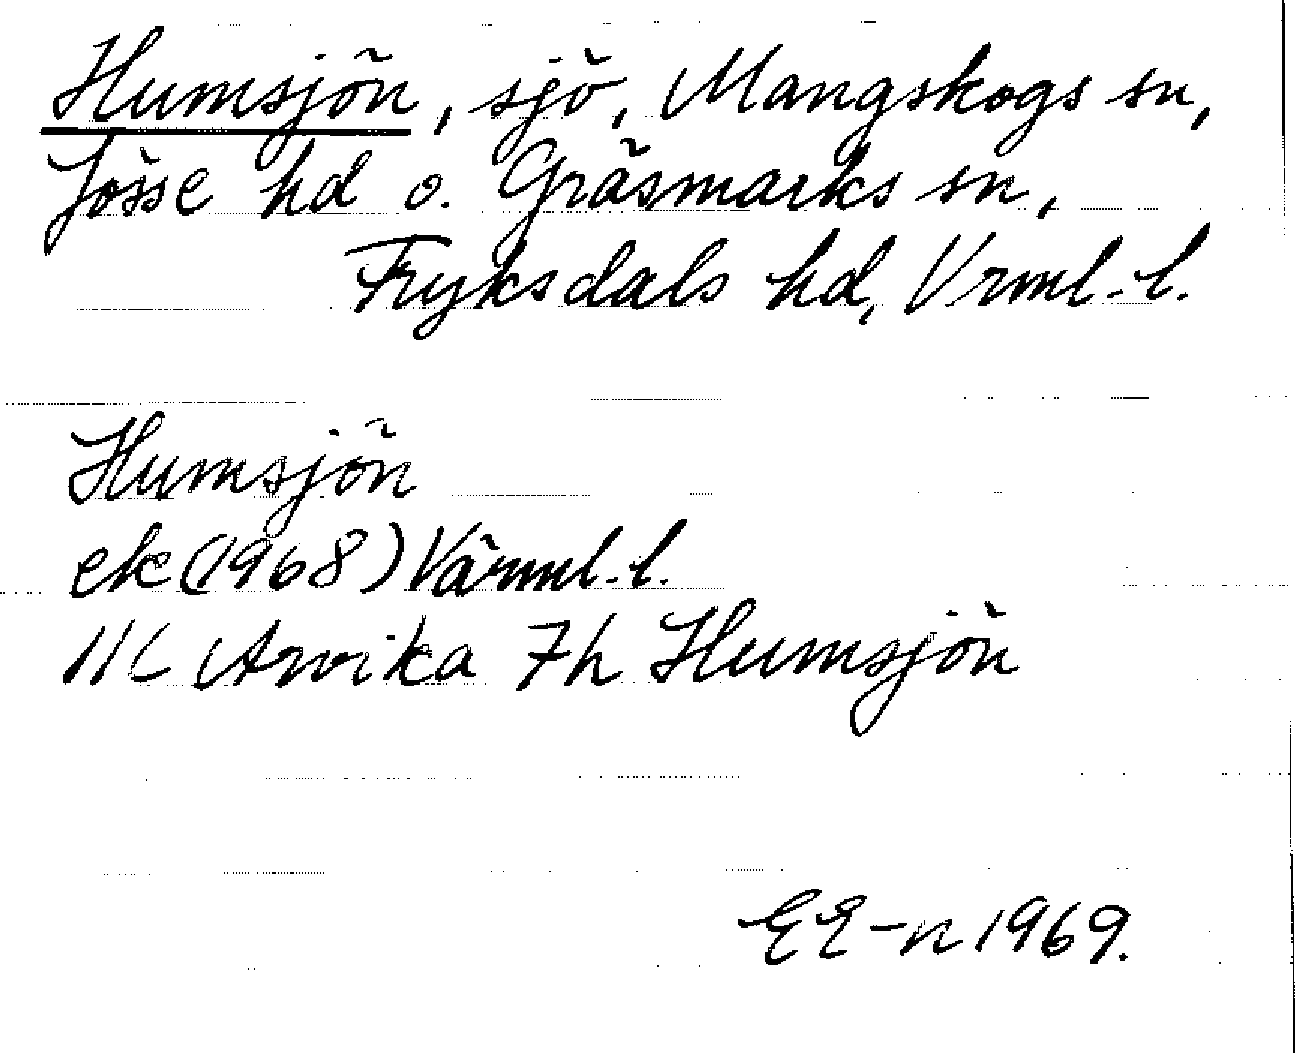 Humsjön, sjö, Mangskogs sn,
Jösse hd o. Gräsmarks sn,
Fryksdals hd, Vrml.l.
Humsjön
ek (1968) Värml.l.
11C Arvika 7h Humsjön
EE-n 1969.